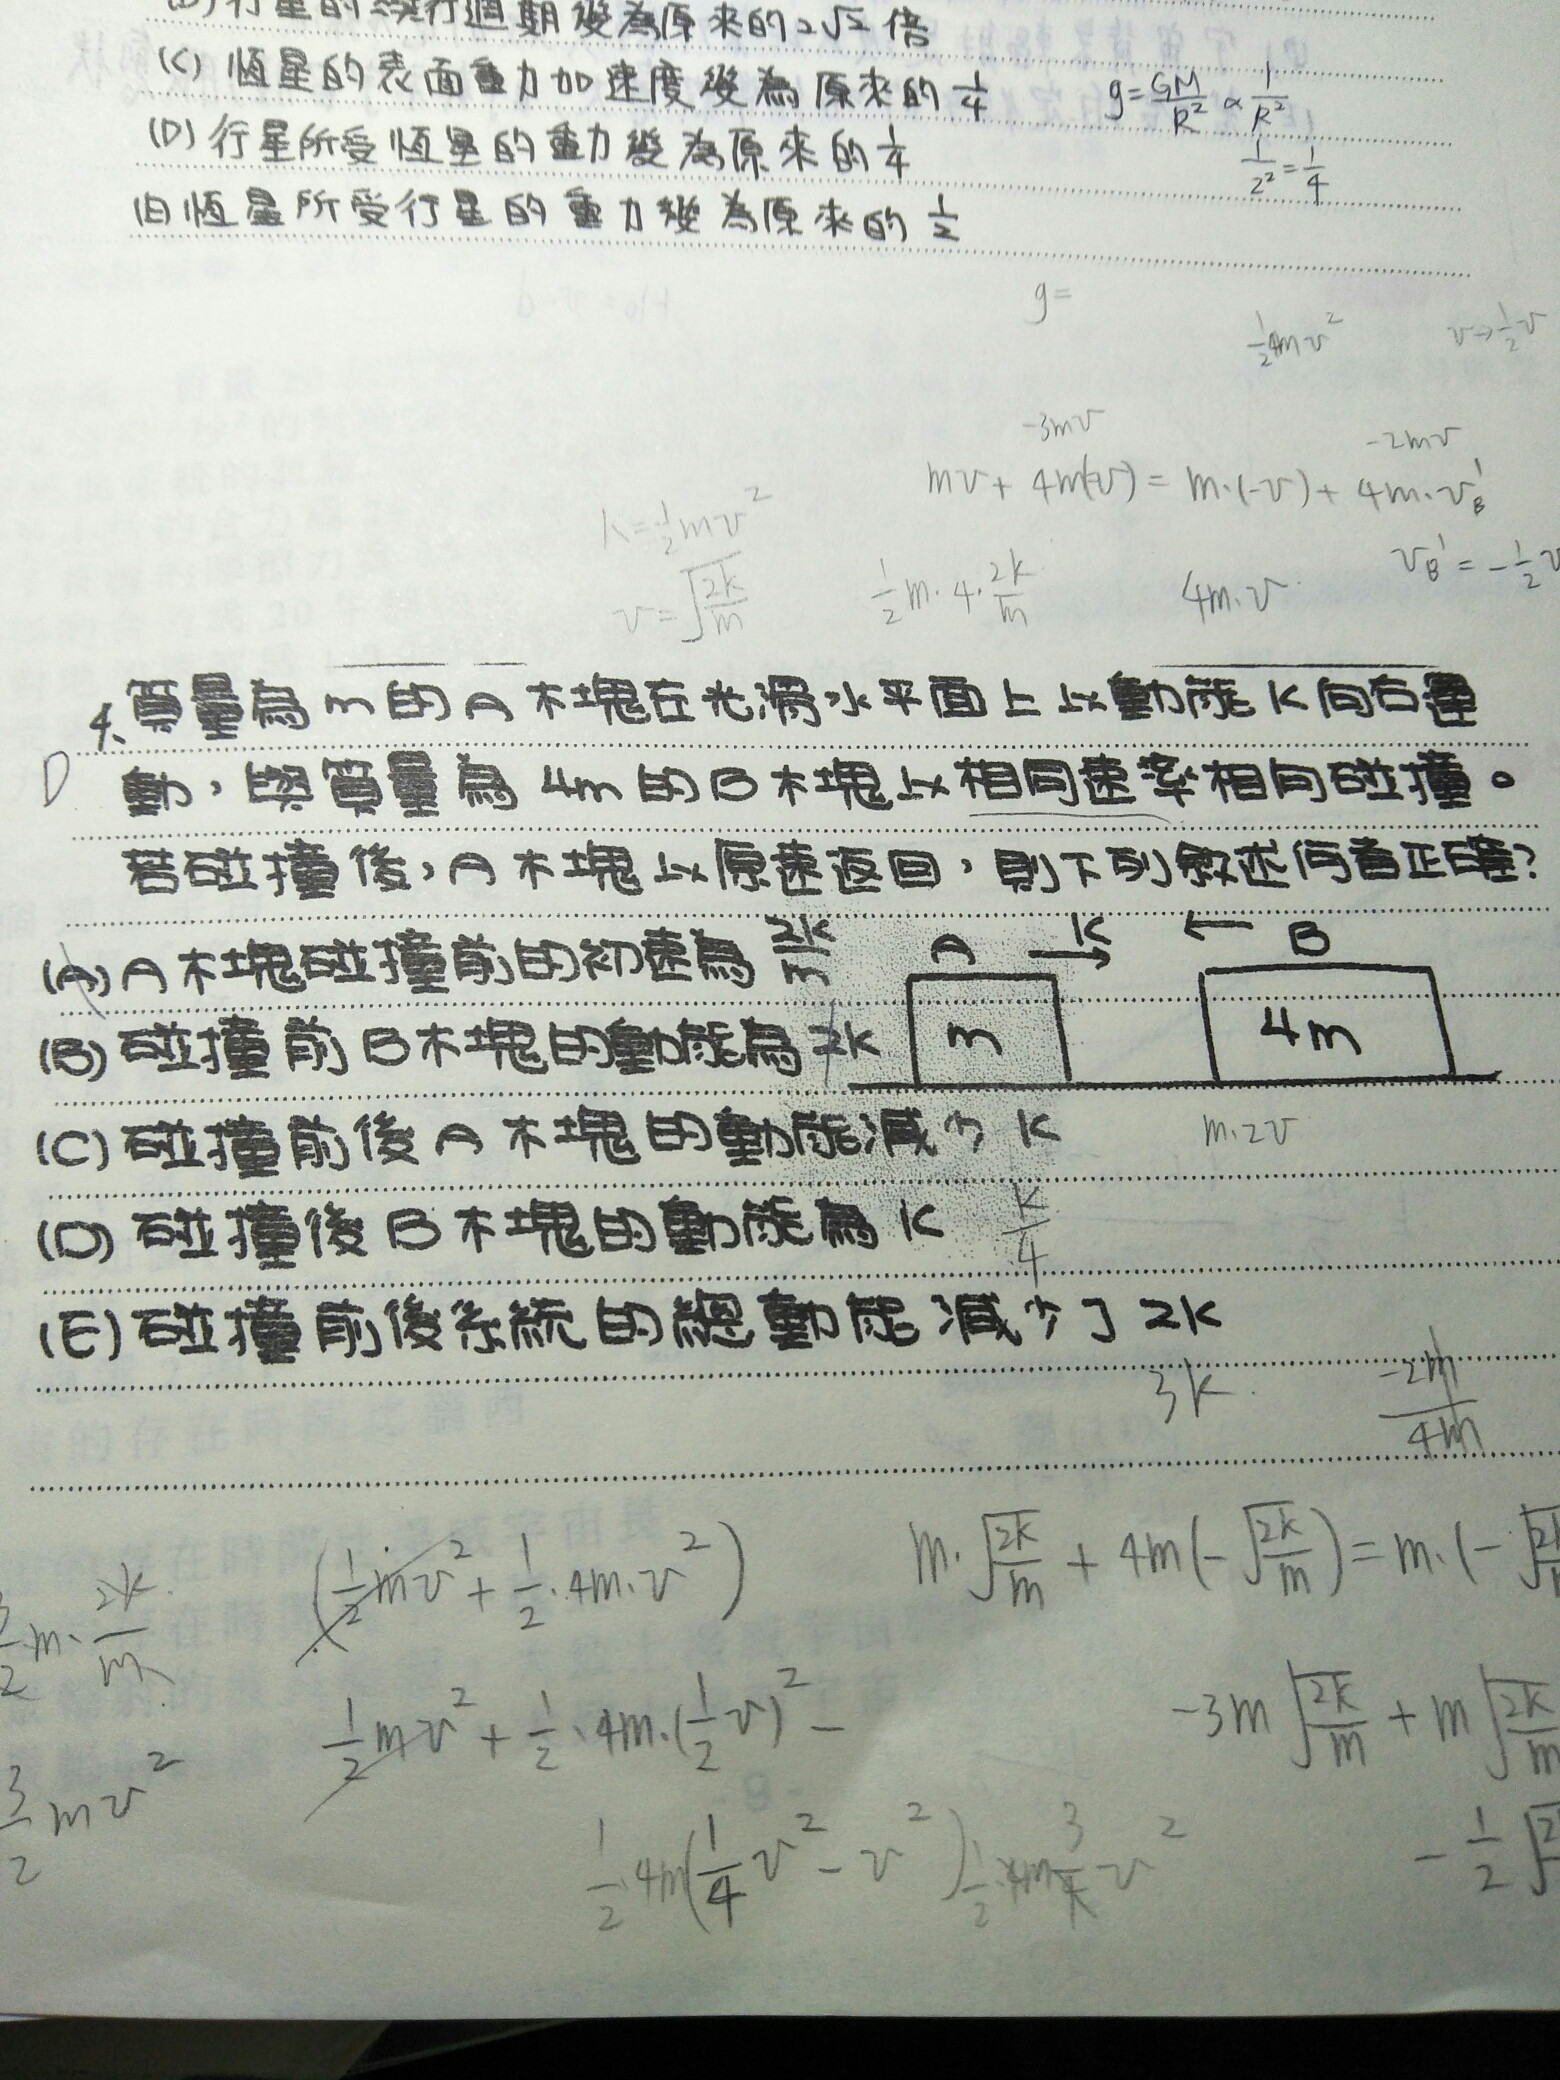 行星的繞行週期變為原來的2√2倍
(C) 恆星的表面重力加速度變為原來的 1/4
g=GM/R² ∝ 1/R²
(D) 行星所受恆星的重力變為原來的 1/4
1/2²=1/4
(E) 恆星所受行星的重力變為原來的 1/2
g=
1/2 4mv²
v→1/2v
-3mv
-2mv
mv+4m(-v)=m·(-v)+4m·v'B
k=1/2mv²
v=√(2k/m)
1/2m·4·2k/m
4m·v
v'B=-1/2v
4、質量為m的A木塊在光滑水平面上以動能K向右運
D
動，與質量為4m的B木塊以相同速率相向碰撞。
若碰撞後，A木塊以原速返回，則下列敘述何者正確?
(A) A木塊碰撞前的初速為 2K/m
A K→ ← B
(B) 碰撞前B木塊的動能為2K
m 4m
(C) 碰撞前後A木塊的動能減少K
m·2v
(D) 碰撞後B木塊的動能為K
K/4
(E) 碰撞前後系統的總動能減少了2K
3K
-2m/4m
m·√(2k/m)+4m(-√(2k/m))=m·(-√
(1/2mv²+1/2·4m·v²)
m·2k/m
1/2mv²+1/2·4m·(1/2v)²-
-3m√(2k/m)+m√(2k/m)
3/2mv²
1/2·4m(1/4v²-v²)
-1/2√